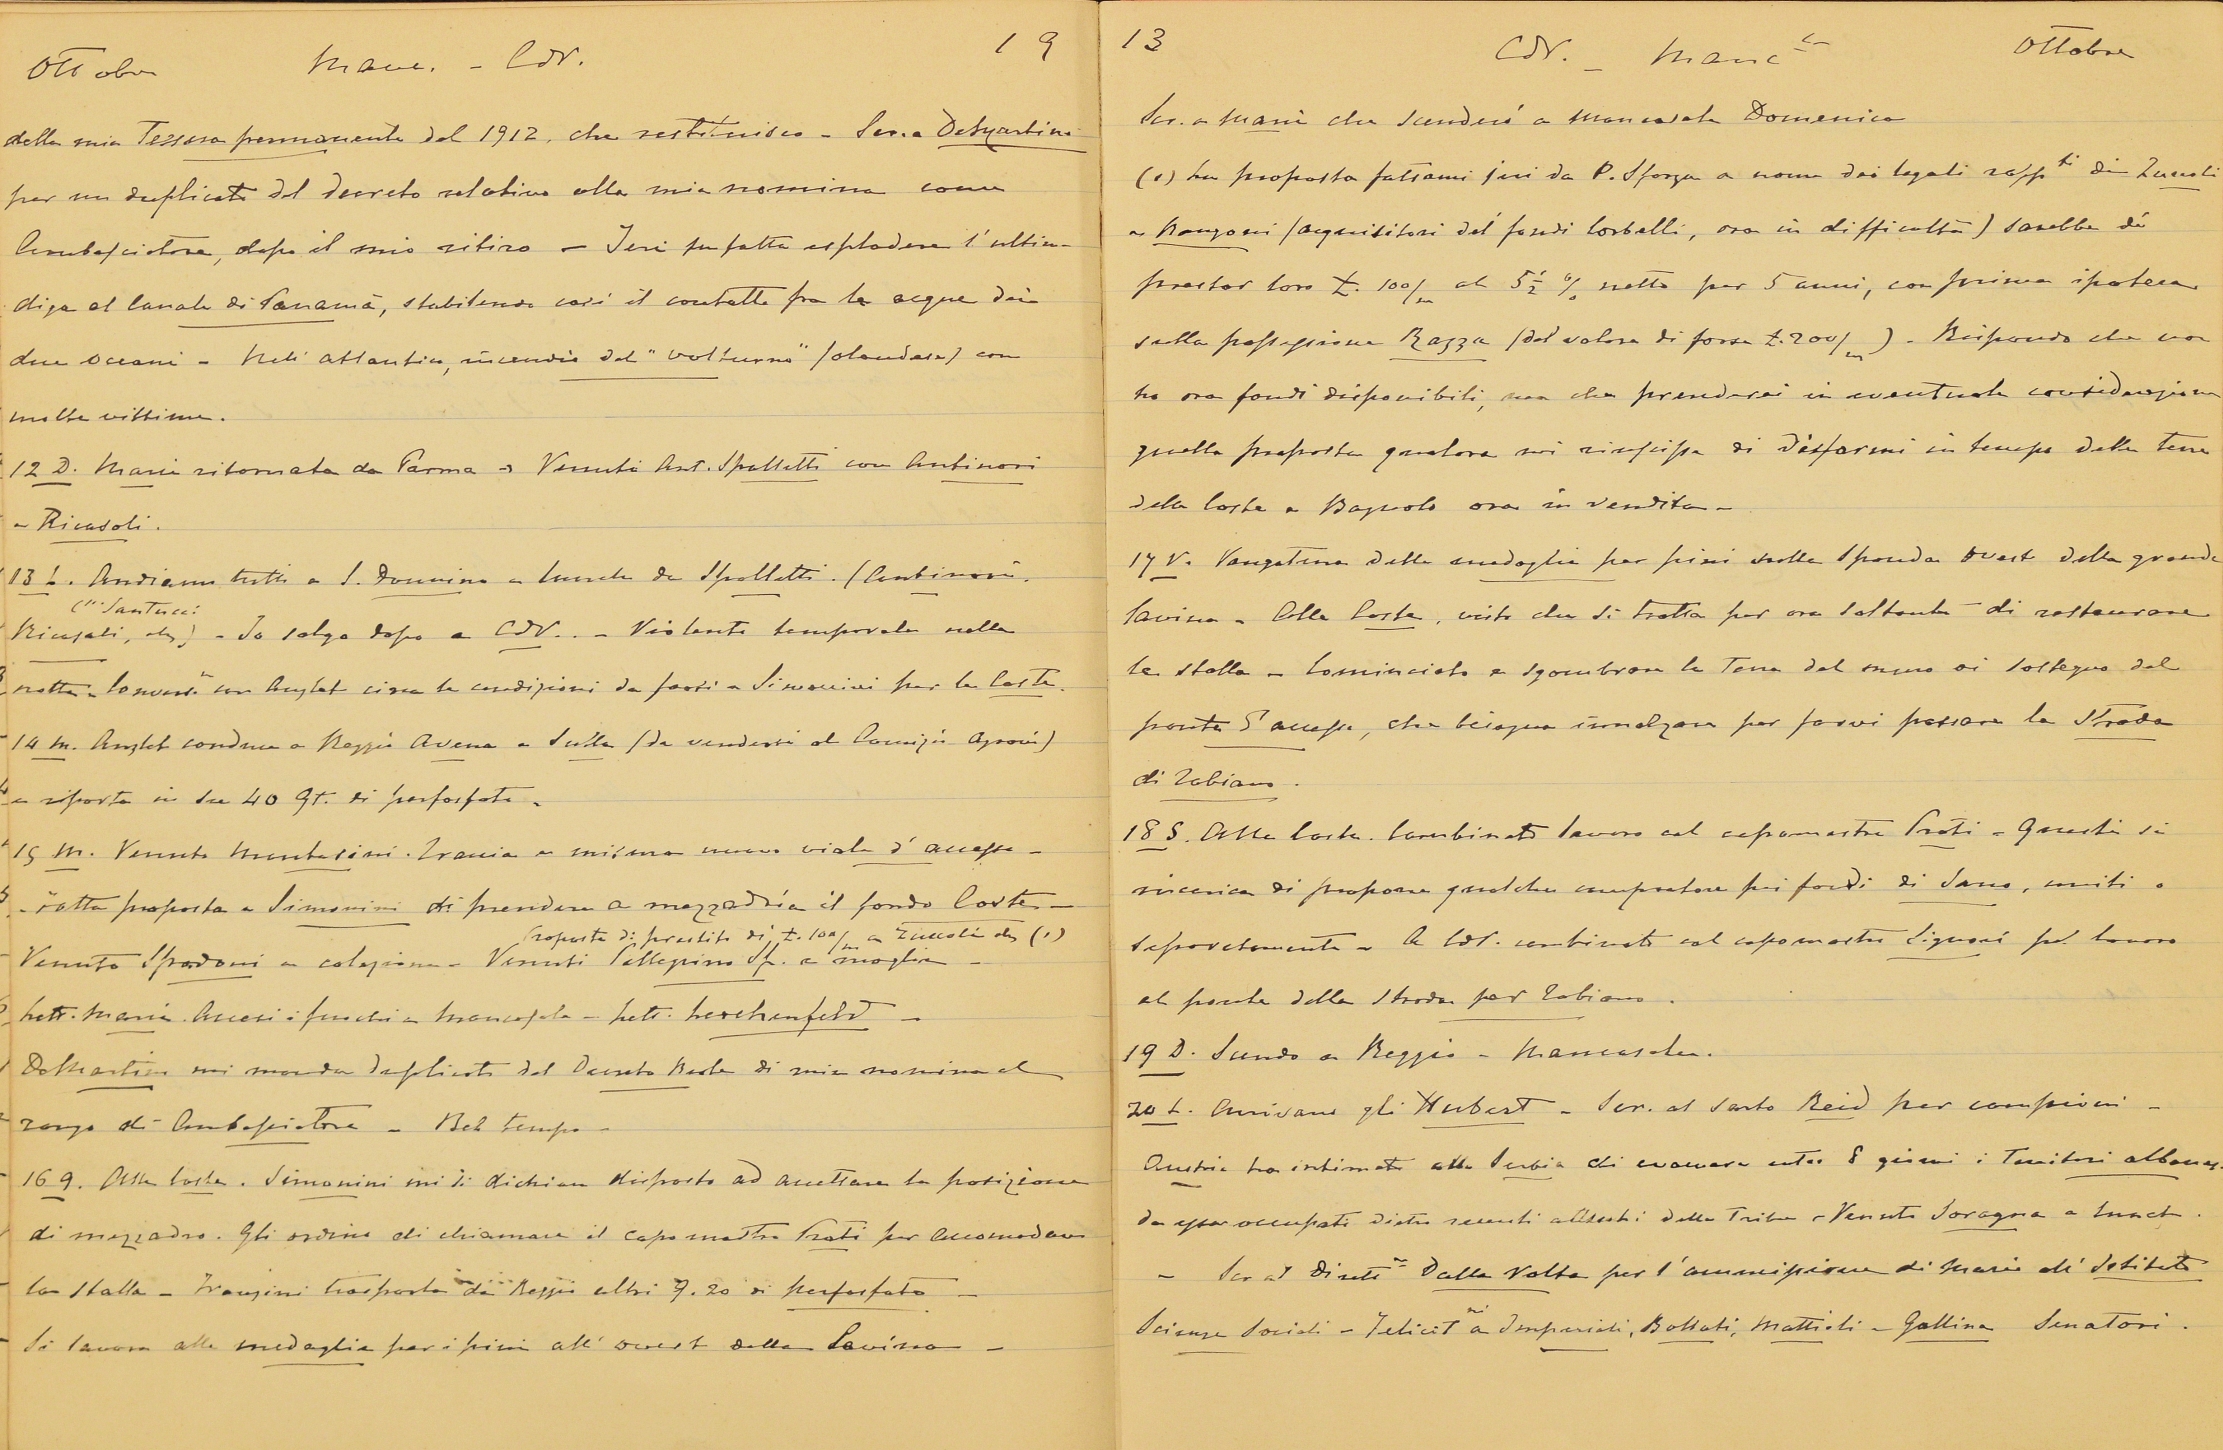 Ottobre Manc. - CdV. 19
della mia Tessera permanente del 1912, che restituisco - Scr. a DeMartino
per un duplicato del decreto relativo alla mia nomina come
Ambasciatore, dopo il mio ritiro - Ieri fu fatta esplodere l'ultima
diga al Canale di Panamà, stabilendo così il contatto fra le acque dei
due oceani - Nell'Atlantico, incendio del "Volturno" (olandese) con
molte vittime.
12 D. Maria ritornata da Parma - Venuti Ant. Spalletti con Antinori
e Ricasoli.
13 L. Andiamo tutti a S. Donnino a lunch da Spalletti. (Antinori,
Santucci
Ricasoli, ) - Io salgo dopo a CdV.. - Violento temporale nella
notte - con Anglet circa le condizioni da farsi a Simonini per la Costa.
14 M. Anglet conduce a Reggio Avena e Sulla (da vendersi al Comizio Agrario)
e riporta in su 40 Qt. di perfosfato -
15 M. Venuto Montesini. Traccia e misura nuovo viale d'accesso -
- Fatta proposta a Simonini di prendere a mezzadria il fondo Costa -
Proposta di prestito di £. 100/m a Zuccoli (1)
Venuto Spadoni a colazione - Venuti Pellegrino Sf. e moglie -
Lett. Maria. Accesi i fuochi a Mancasale - Lett. Lerchenfeld -
DeMartino mi manda duplicato del Decreto Reale di mia nomina al
rango di Ambasciatore - Bel tempo -
16 G. Alla Costa. Simonini mi si dichiara disposto ad accettare la posizione
di mezzadro. Gli ordino di chiamare il capomastro Prati per accomodare
la stalla - Franzini trasporta da Reggio altri Q. 20 di perfosfato -
Si lavora alle medaglie per i pini all'ovest della Cavina -
13 CdV. - Manc Ottobre
Scr. a Maria che scenderò a Mancasale Domenica
(1) La proposta fattami ieri da P. Sforza a nome dei legali rapp ti di Zuccoli
e Rangoni (acquisitori dei fondi Corbelli, ora in difficoltà) sarebbe di
prestar loro £. 100/m al 5½ % netto per 5 anni, con prima ipoteca
sulla possessione Razza (del valore di forse £. 200/m) - Rispondo che non
ho ora fondi disponibili, ma che prenderei in eventuale considerazione
quella proposta qualora mi riuscisse di disfarmi in tempo delle terre
della Costa e Bagnolo ora in vendita -
17 V. Vangatura delle medaglie per pini sulla sponda ovest della grande
Cavina - Alla Costa, visto che si tratta per ora soltanto di restaurare
la stalla - Cominciato a sgombrare la terra dal muro di sostegno del
ponte d'accesso, che bisogna innalzare per farvi passare la strada
di Zobiano.
18 S. Alla Costa. Combinato lavoro col capomastro Prati - Questi si
incarica di proporre qualche compratore pei fondi di Sano, uniti o
separatamente - A CdV. combinato col capomastro Liguori pel lavoro
al ponte della strada per Zobiano.
19 D. Scendo a Reggio - Mancasale.
20 L. Arrivano gli Hubert - Scr. al sarto Reid per campioni -
Austria ha intimato alla Serbia di evacuare entro 8 giorni i Territori albanesi
da essa occupati dietro recenti attacchi delle Tribù - Venuto Soragna a lunch.
- Scr al Dirett re Dalla Volta per l'ammissione di Maria all'Istituto
Scienze Sociali - Felicit ni a Imperiali, Bollati, Mattioli e Gallina Senatori.